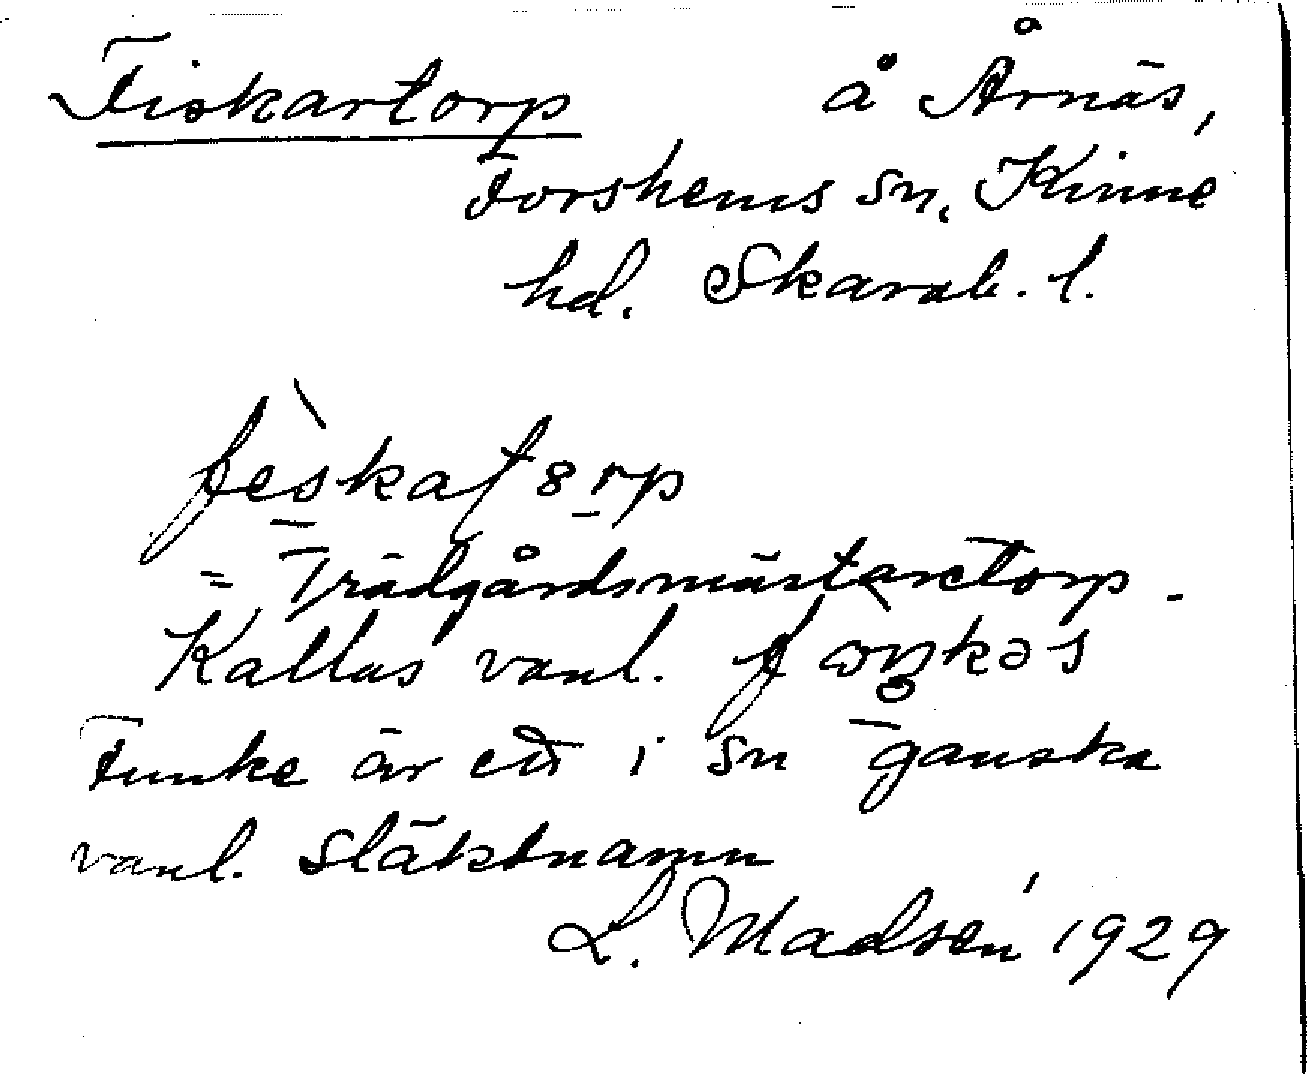 Fiskartorp å Årnäs,
Forshems sn, Kinne
hd. Skarab. l.
fèskatorp
= Trädgårdsmästaretorp.
Kallas vanl.
Funke är ett i sn ganska
vanl. släktnamn
L. Madsén 1929